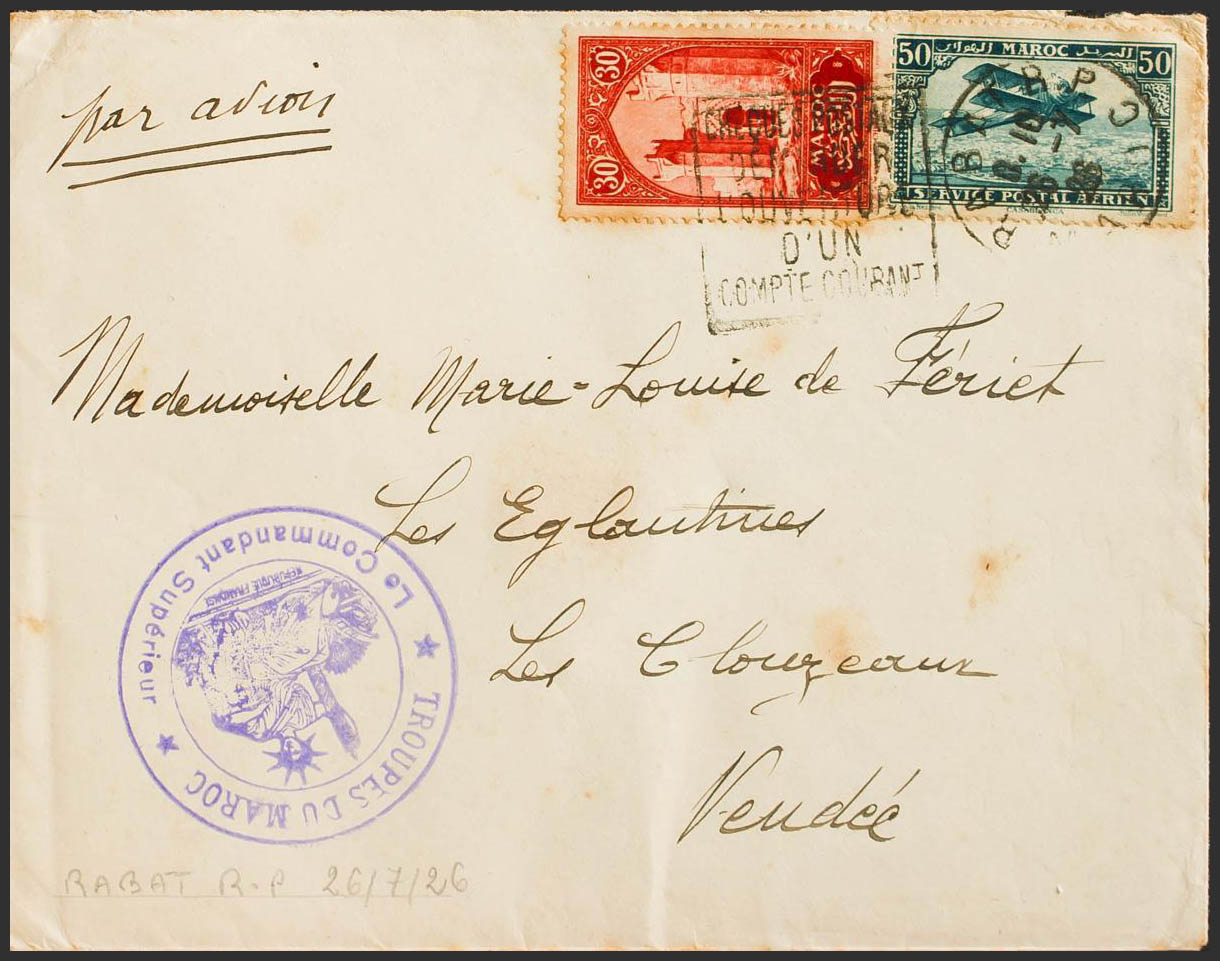 par avion
30 30
MAROC
50 MAROC البريد الهوائي 50
SERVICE POSTAL AERIEN
CASABLANCA
RABAT R.P
8.10
26 -7
26
CHEQUES POSTAUX
L'OUVERTURE
D'UN
COMPTE COURANT
Mademoiselle Marie-Louise de Fériet
Les Eglantines
Les Clouzeaux
Vendée
TROUPES DU MAROC
Le Commandant Supérieur
REPUBLIQUE FRANÇAISE
RABAT R.P 26/7/26